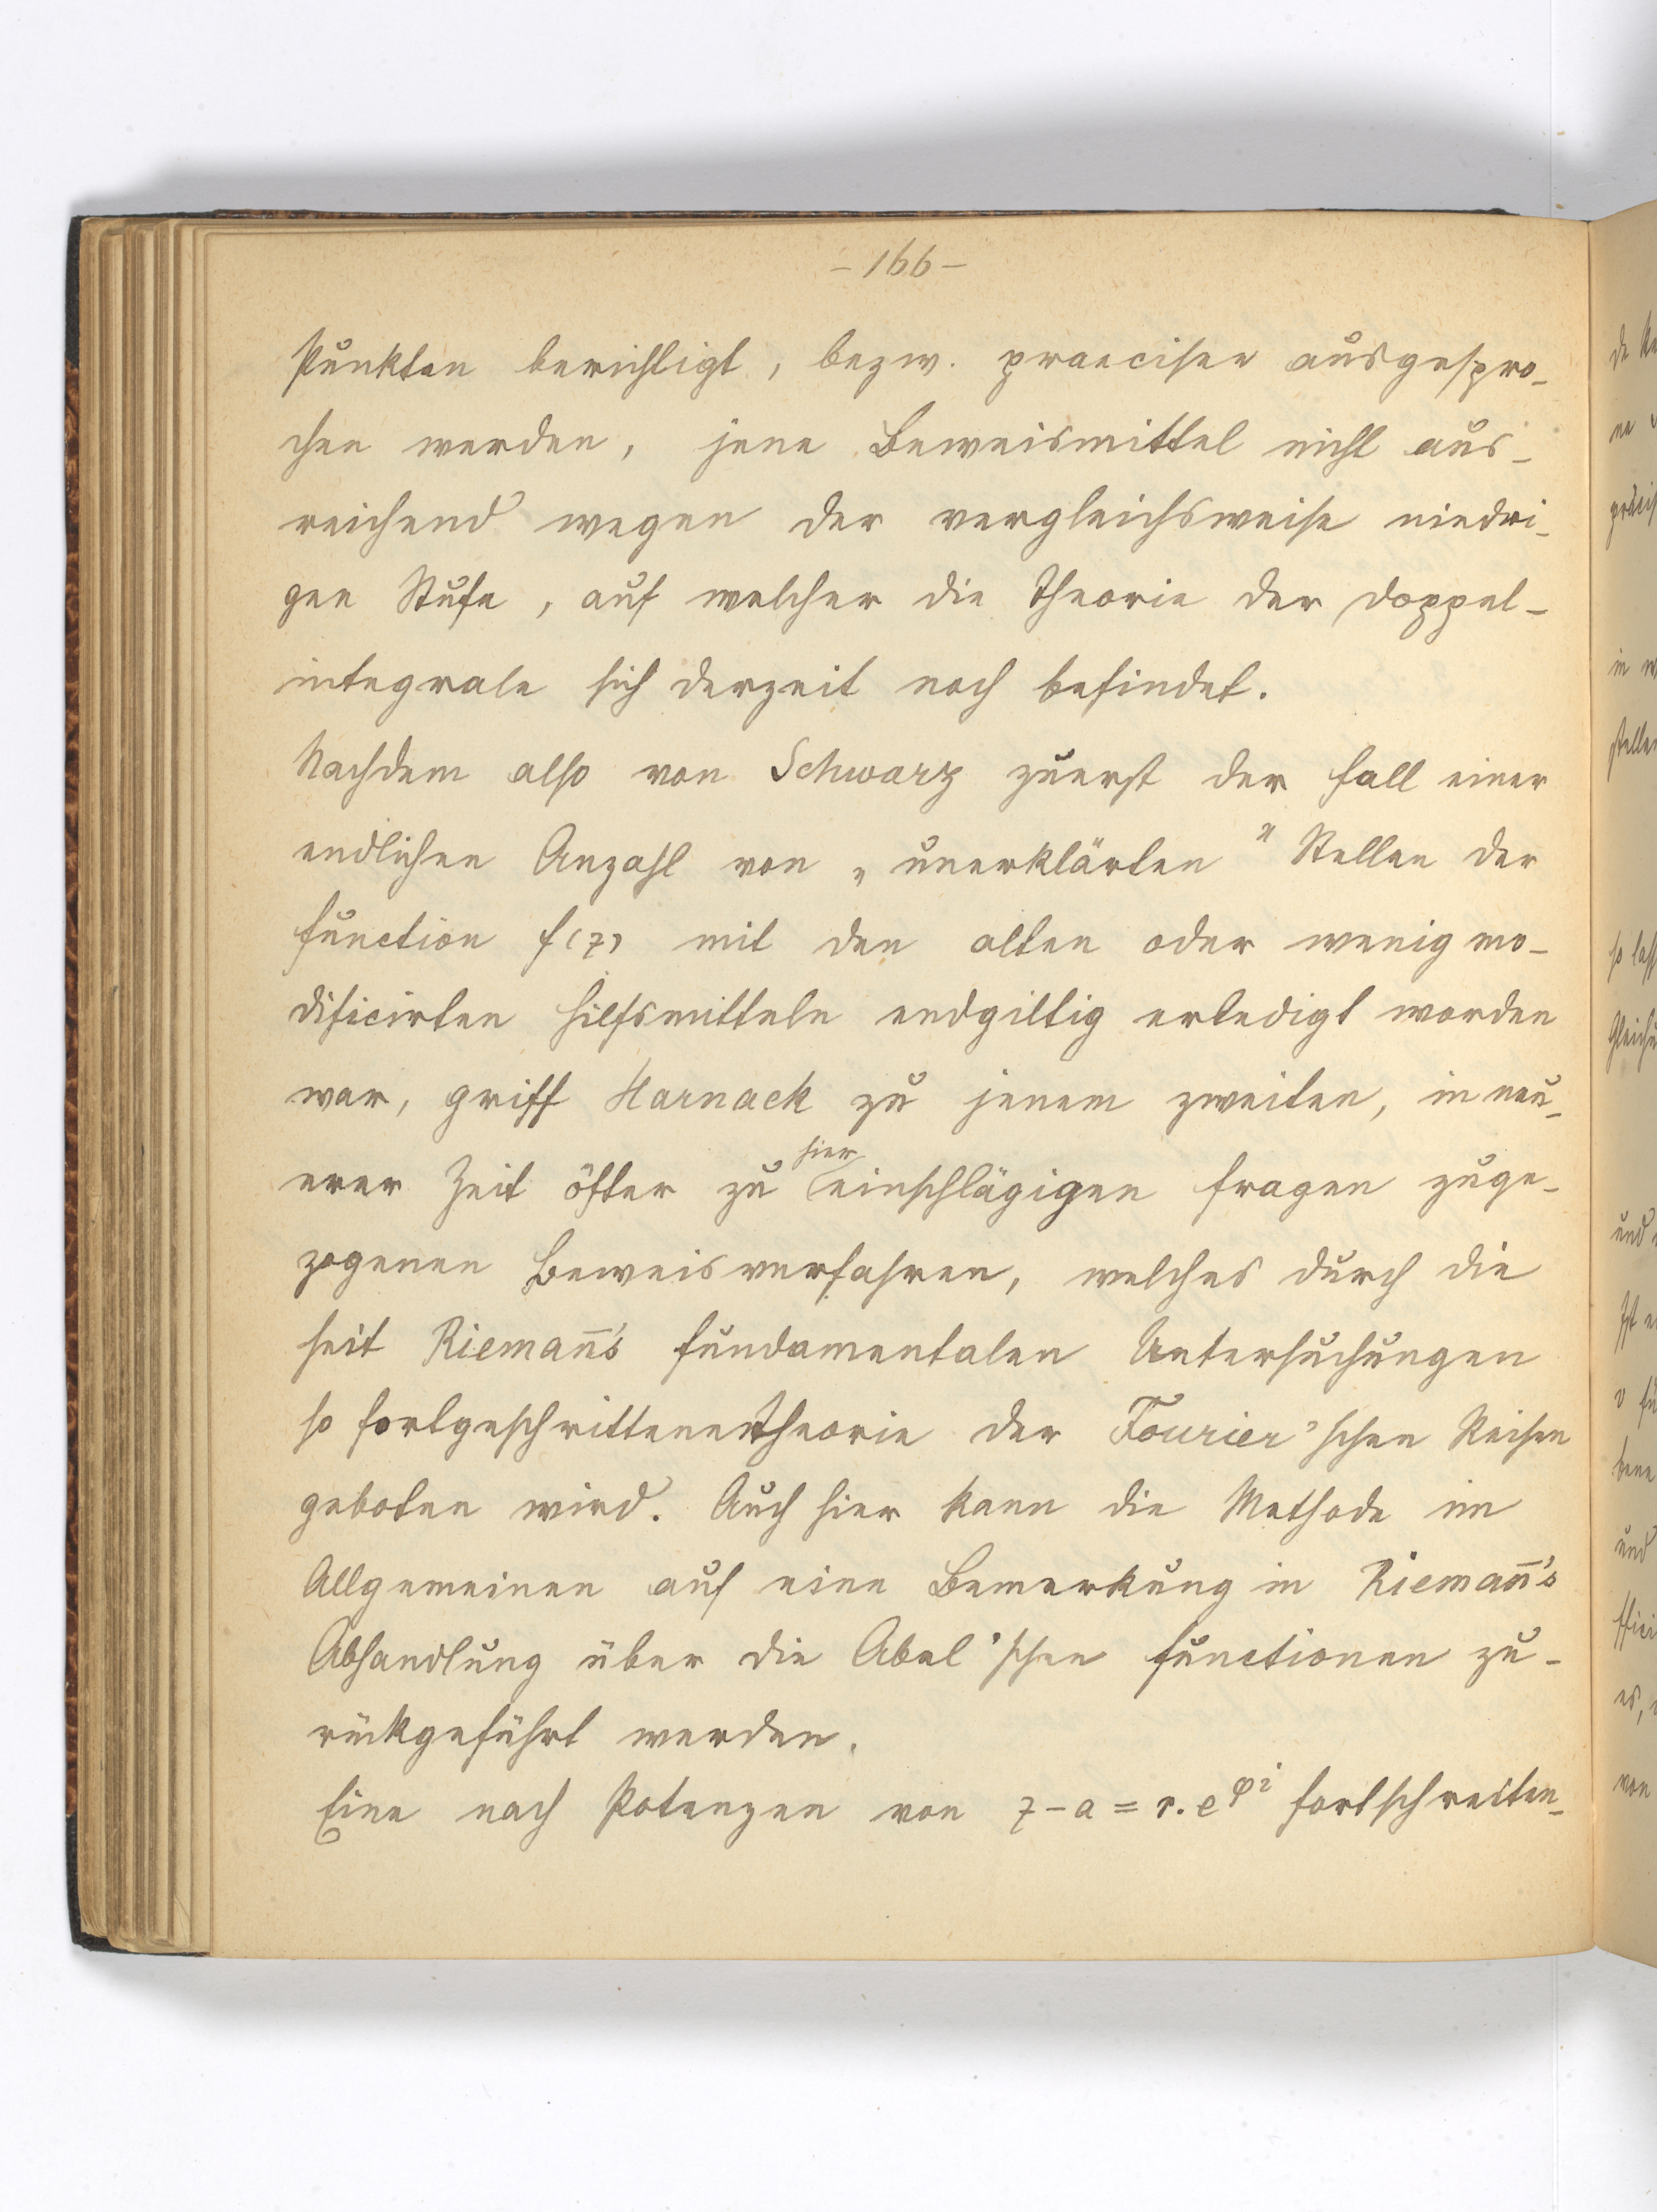 - 166 -
Punkten berichtigt, bezw. praeciser ausgespro-
chen werden, jene Beweismittel nicht aus-
reichend wegen der vergleichsweise niedri-
gen Stufe, auf welcher die Theorie der Doppel-
integrale sich derzeit noch befindet.
Nachdem also von Schwarz zuerst der Fall einer
endlichen Anzahl von „unerklärten" Stellen der
Function f(z) mit den alten oder wenig mo-
dificirten Hilfsmitteln endgiltig erledigt worden
war, griff Harnack zu jenem zweiten, in neu-
erer Zeit öfter zu hier einschlägigen Fragen zuge-
zogenen Beweisverfahren, welches durch die
seit Rieman̄'s fundamentalen Untersuchungen
so fortgeschrittene Theorie der Fourier'schen Reihen
geboten wird. Auch hier kann die Methode im
Allgemeinen auf eine Bemerkung in Rieman̄'s
Abhandlung über die Abel'schen Functionen zu-
rückgeführt werden.
Eine nach Potenzen von z-a = r.e^{φi} fortschreiten-